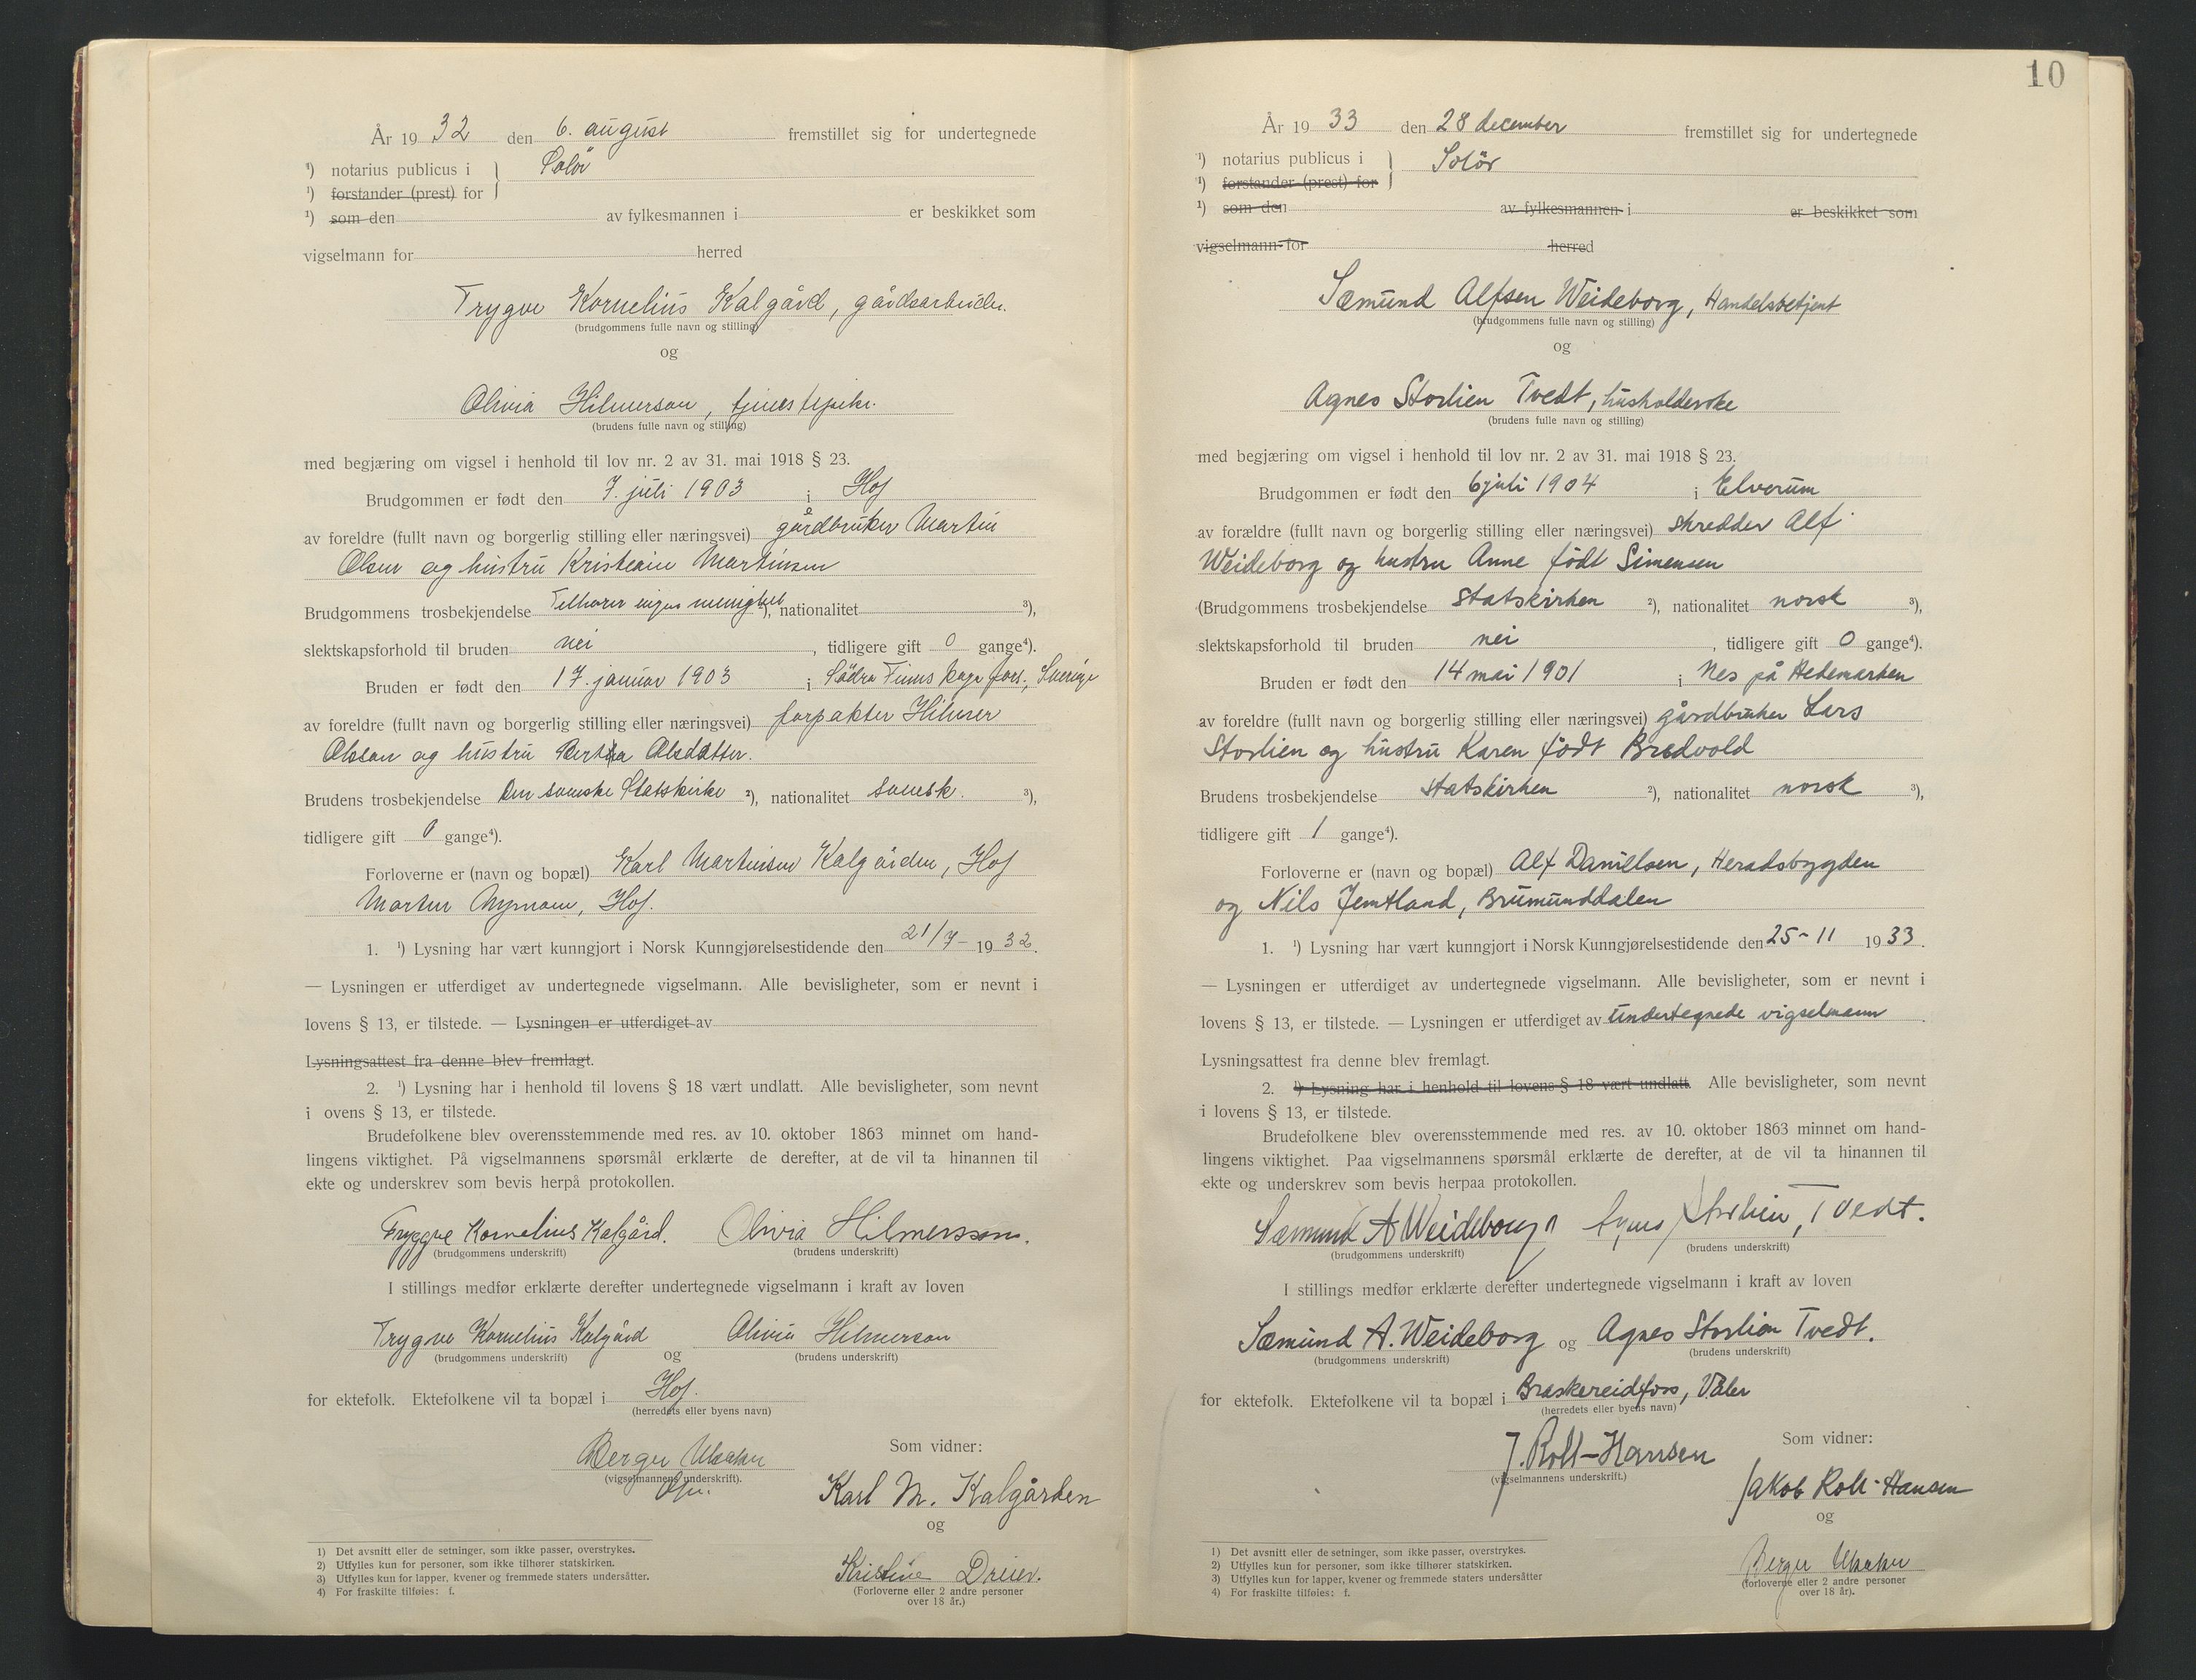 År 19 32 den 6. august fremstillet sig for undertegnede
¹) notarius publicus i } Solör
¹) forstander (prest) for
¹) som den av fylkesmannen i er beskikket som
vigselmann for herred
Trygve Kornelius Kalgård, gårdsarbeider.
(brudgommens fulle navn og stilling)
og
Olivia Hilmerson, tjenestepike.
(brudens fulle navn og stilling)
med begjæring om vigsel i henhold til lov nr. 2 av 31. mai 1918 § 23.
Brudgommen er født den 7. juli 1903 i Hof
av foreldre (fullt navn og borgerlig stilling eller næringsvei) gårdbruker Martin
Olsen og hustru Kristiane Martinsen
Brudgommens trosbekjendelse Tilhører ingen menighet ²), nationalitet ³),
slektskapsforhold til bruden nei , tidligere gift 0 gange⁴).
Bruden er født den 17. januar 1903 i Södra Finnskoga fors., Sverige
av foreldre (fullt navn og borgerlig stilling eller næringsvei) forpakter Hilmer
Olsson og hustru Berta Olsdatter.
Brudens trosbekjendelse Den svenske Statskirke ²), nationalitet svensk. ³),
tidligere gift 0 gange⁴).
Forloverne er (navn og bopæl) Karl Martinsen Kalgården, Hof
Martin Nyman, Hof.
1. ¹) Lysning har vært kunngjort i Norsk Kunngjørelsestidende den 21/7 - 19 32.
— Lysningen er utferdiget av undertegnede vigselmann. Alle bevisligheter, som er nevnt i
lovens § 13, er tilstede. — Lysningen er utferdiget av
Lysningsattest fra denne blev fremlagt.
2. ¹) Lysning har i henhold til lovens § 18 vært undlatt. Alle bevisligheter, som nevnt
i ovens § 13, er tilstede.
Brudefolkene blev overensstemmende med res. av 10. oktober 1863 minnet om hand-
lingens viktighet. På vigselmannens spørsmål erklærte de derefter, at de vil ta hinannen til
ekte og underskrev som bevis herpå protokollen.
Tryggve Kornelius Kalgård. Olivia Hilmersson.
(brudgommens underskrift) (brudens underskrift)
I stillings medfør erklærte derefter undertegnede vigselmann i kraft av loven
Trygve Kornelius Kalgård og Olivia Hilmerson
(brudgommens underskrift) (brudens underskrift)
for ektefolk. Ektefolkene vil ta bopæl i Hof.
(herredets eller byens navn)
Berger
(vigselmannens underskrift).
Som vidner:
Karl M. Kalgården
og
Kristine Dreier.
(Forloverne eller 2 andre personer
over 18 år.)
1) Det avsnitt eller de setninger, som ikke passer, overstrykes.
2) Utfylles kun for personer, som ikke tilhører statskirken.
3) Utfylles kun for lapper, kvener og fremmede staters undersåtter.
4) For fraskilte tilføies: f.
10
År 19 33 den 28 december fremstillet sig for undertegnede
¹) notarius publicus i } Solör
¹) forstander (prest) for
¹) som den av fylkesmannen i er beskikket som
vigselmann for herred
Sæmund Alfsen Weideborg, Handelsbetjent
(brudgommens fulle navn og stilling)
og
Agnes Storlien Tvedt, husholderske
(brudens fulle navn og stilling)
med begjæring om vigsel i henhold til lov nr. 2 av 31. mai 1918 § 23.
Brudgommen er født den 6 juli 1904 i Elverum
av forældre (fullt navn og borgerlig stilling eller næringsvei) skredder Alf
Weideborg og hustru Anne født Simensen
(Brudgommens trosbekjendelse Statskirken ²), nationalitet norsk ³),
slektskapsforhold til bruden nei , tidligere gift 0 gange⁴).
Bruden er født den 14 mai 1901 i Nes på Hedemarken
av foreldre (fullt navn og borgerlig stilling eller næringsvei) gårdbruker Lars
Storlien og hustru Karen födt Bredvold
Brudens trosbekjendelse Statskirken ²), nationalitet norsk ³),
tidligere gift 1 gange⁴).
Forloverne er (navn og bopæl) Alf Danielsen, Heradsbygden
og Nils Jemtland, Brumunddalen
1. ¹) Lysning har vært kunngjort i Norsk Kunngjørelsestidende den 25 - 11 19 33.
— Lysningen er utferdiget av undertegnede vigselmann. Alle bevisligheter, som er nevnt i
lovens § 13, er tilstede. — Lysningen er utferdiget av undertegnede vigselmann.
Lysningsattest fra denne blev fremlagt.
2. ¹) Lysning har i henhold til lovens § 18 vært undlatt Alle bevisligheter, som nevnt
i lovens § 13, er tilstede.
Brudefolkene blev overensstemmende med res. av 10. oktober 1863 minnet om hand-
lingens viktighet. Paa vigselmannens spørsmål erklærte de derefter, at de vil ta hinannen til
ekte og underskrev som bevis herpaa protokollen.
Sæmund A Weideborg Agnes Storlien, Tvedt.
(brudgommens underskrift) (brudens underskrift)
I stillings medfør erklærte derefter undertegnede vigselmann i kraft av loven
Sæmund A. Weideborg og Agnes Storlien Tvedt.
(brudgommens underskrift) (brudens underskrift)
for ektefolk. Ektefolkene vil ta bopæl i Braskereidfoss, Våler
(herredets eller byens navn)
J. Roll-Hansen
(vigselmannens underskrift.)
Som vidner:
Jakob Roll-Hansen
og
Berger
(forloverne eller 2 andre personer
over 18 år).
1) Det avsnitt eller de setninger, som ikke passer, overstrykes.
2) Utfylles kun for personer, som ikke tilhører statskirken.
3) Utfylles kun for lapper, kvener og fremmede staters undersåtter
4) For fraskilte tilføies: f.